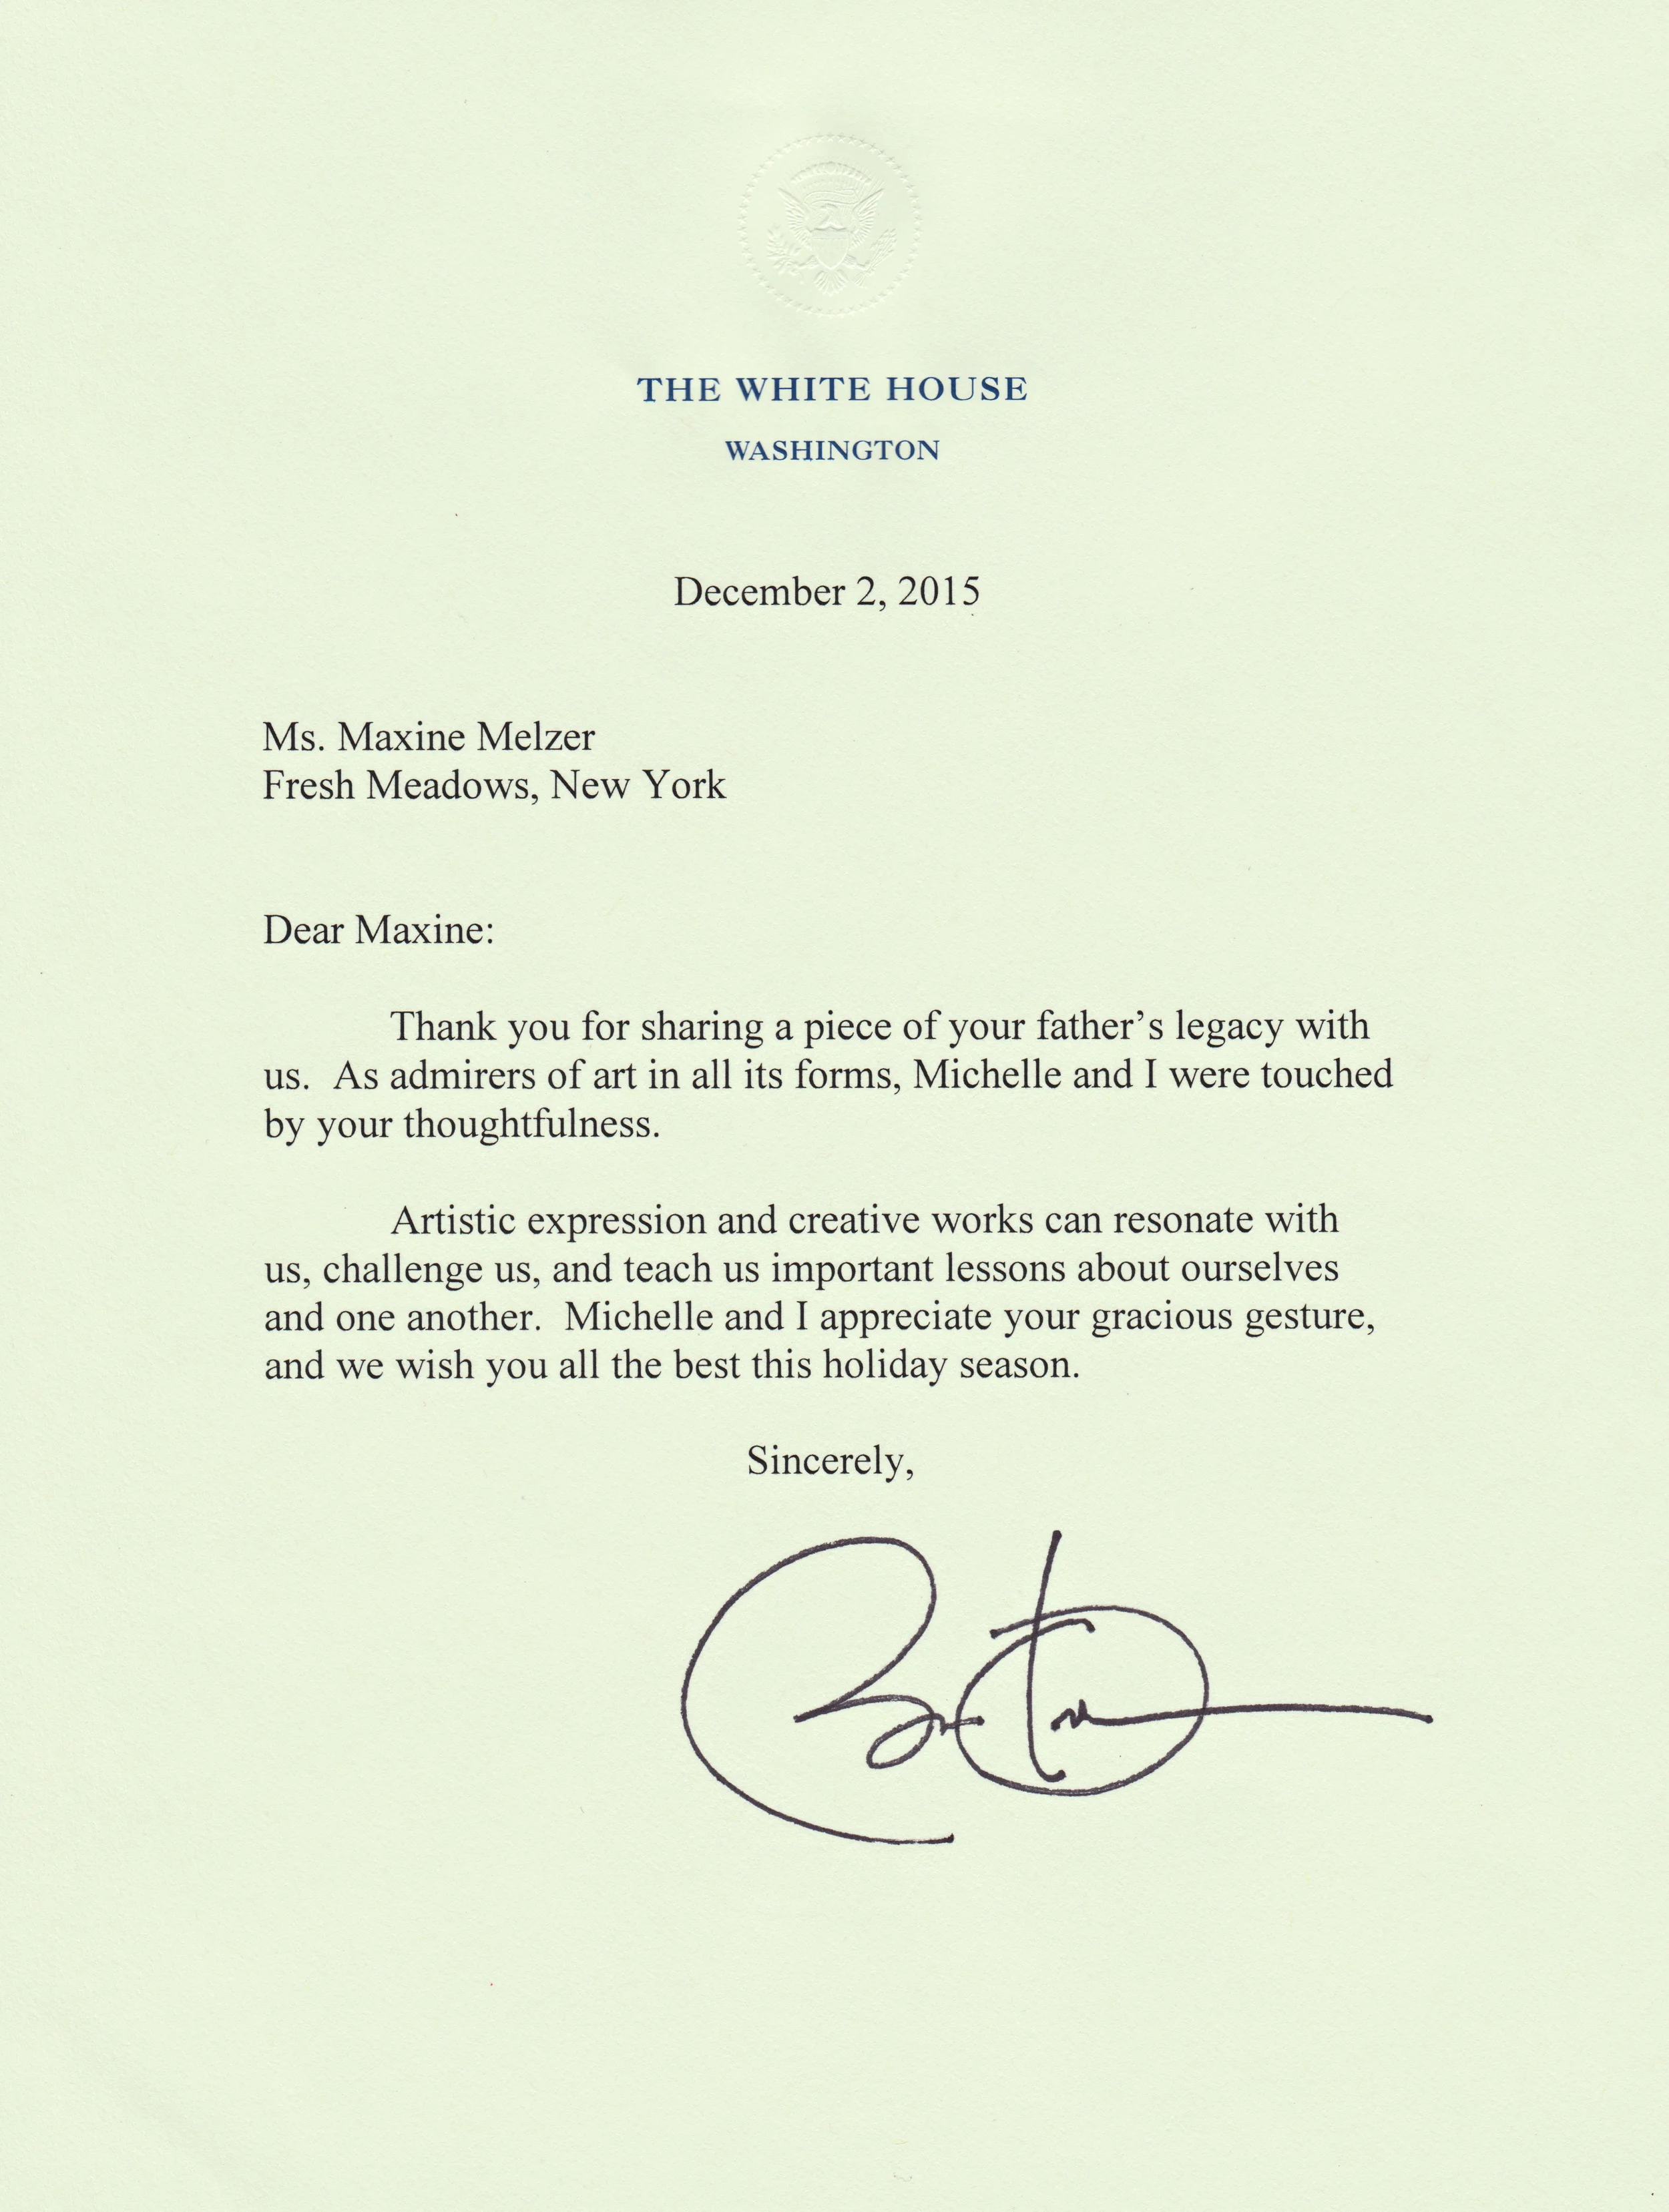 THE WHITE HOUSE
WASHINGTON
December 2, 2015
Ms. Maxine Melzer
Fresh Meadows, New York
Dear Maxine:
Thank you for sharing a piece of your father’s legacy with
us.  As admirers of art in all its forms, Michelle and I were touched
by your thoughtfulness.
Artistic expression and creative works can resonate with
us, challenge us, and teach us important lessons about ourselves
and one another.  Michelle and I appreciate your gracious gesture,
and we wish you all the best this holiday season.
Sincerely,